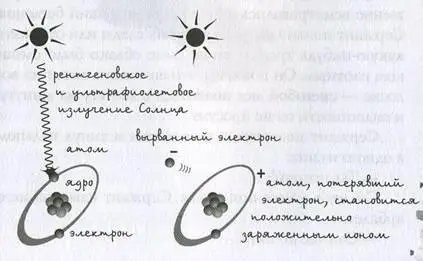 рентгеновское
и ультрафиолетовое
излучение Солнца
атом
ядро
электрон
вырванный электрон
−
+
атом, потерявший
электрон, становится
положительно
заряженным ионом